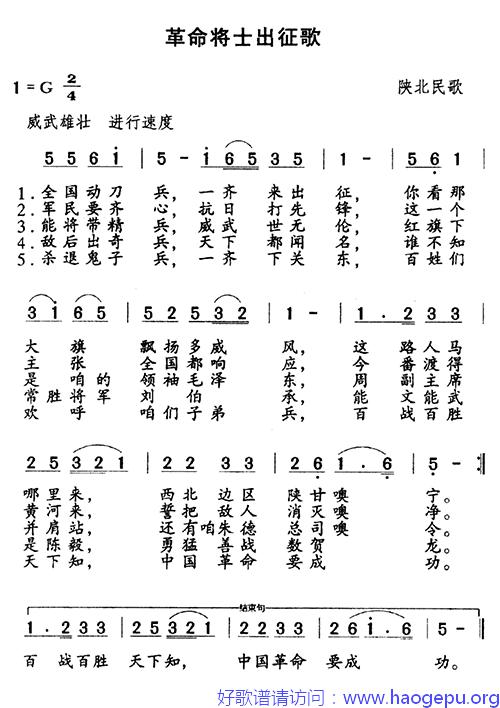 革命将士出征歌
1=G 2/4
陕北民歌
威武雄壮 进行速度
5 5 6 1 | 5 - 1 6 5 3 5 | 1 - | 5 6 1 |
1.全国动刀 兵，一齐 来出 征， 你看那
2.军民要齐 心，抗日 打先 锋， 这一个
3.能将带精 兵，威武 世无 伦， 红旗下
4.敌后出奇 兵，天下 都闻 名， 谁不知
5.杀退鬼子 兵，一齐 下关 东， 百姓们
3 1 6 5 | 5 2 5 3 2 | 1 - | 1 . 2 3 3 |
大 旗 飘扬多威 风， 这 路人马
主 张 全国都响 应， 今 番渡得
是 咱的 领袖毛泽 东， 周 副主席
常胜将军 刘 伯 承， 能 文能武
欢 呼 咱们子弟 兵， 百 战百胜
2 5 3 2 1 | 2 2 3 3 | 2 6 1 . 6 | 5 - :|
哪里来， 西北边区 陕甘噢 宁。
黄河来， 誓把敌人 消灭噢 净。
并肩站， 还有咱朱德 总司噢 令。
是陈毅， 勇猛善战 数贺 龙。
天下知， 中国革命 要成 功。
结束句
1 . 2 3 3 | 2 5 3 2 1 | 2 2 3 3 | 2 6 1 . 6 | 5 - ‖
百 战百胜 天下知， 中国革命 要成 功。
好歌谱请访问：www.haogepu.org